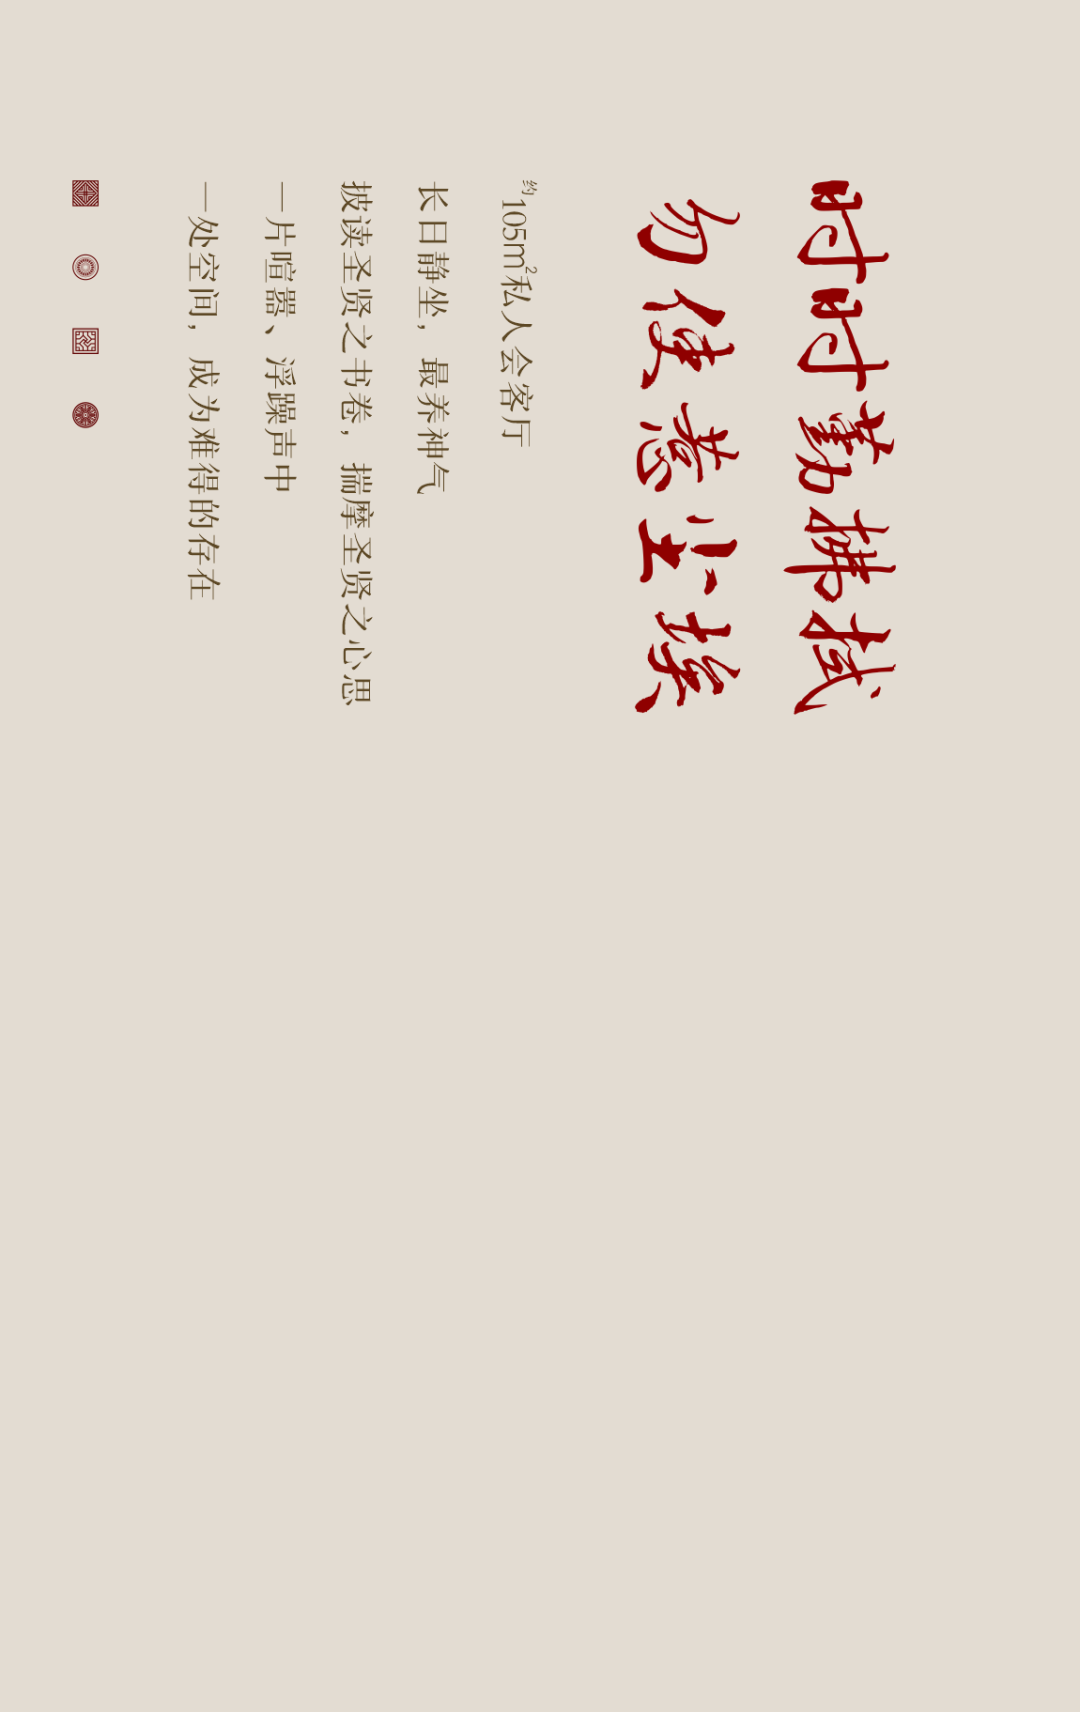 时时勤拂拭
勿使惹尘埃
约105m²私人会客厅
长日静坐，最养神气
披读圣贤之书卷，揣摩圣贤之心思
一片喧嚣、浮躁声中
一处空间，成为难得的存在